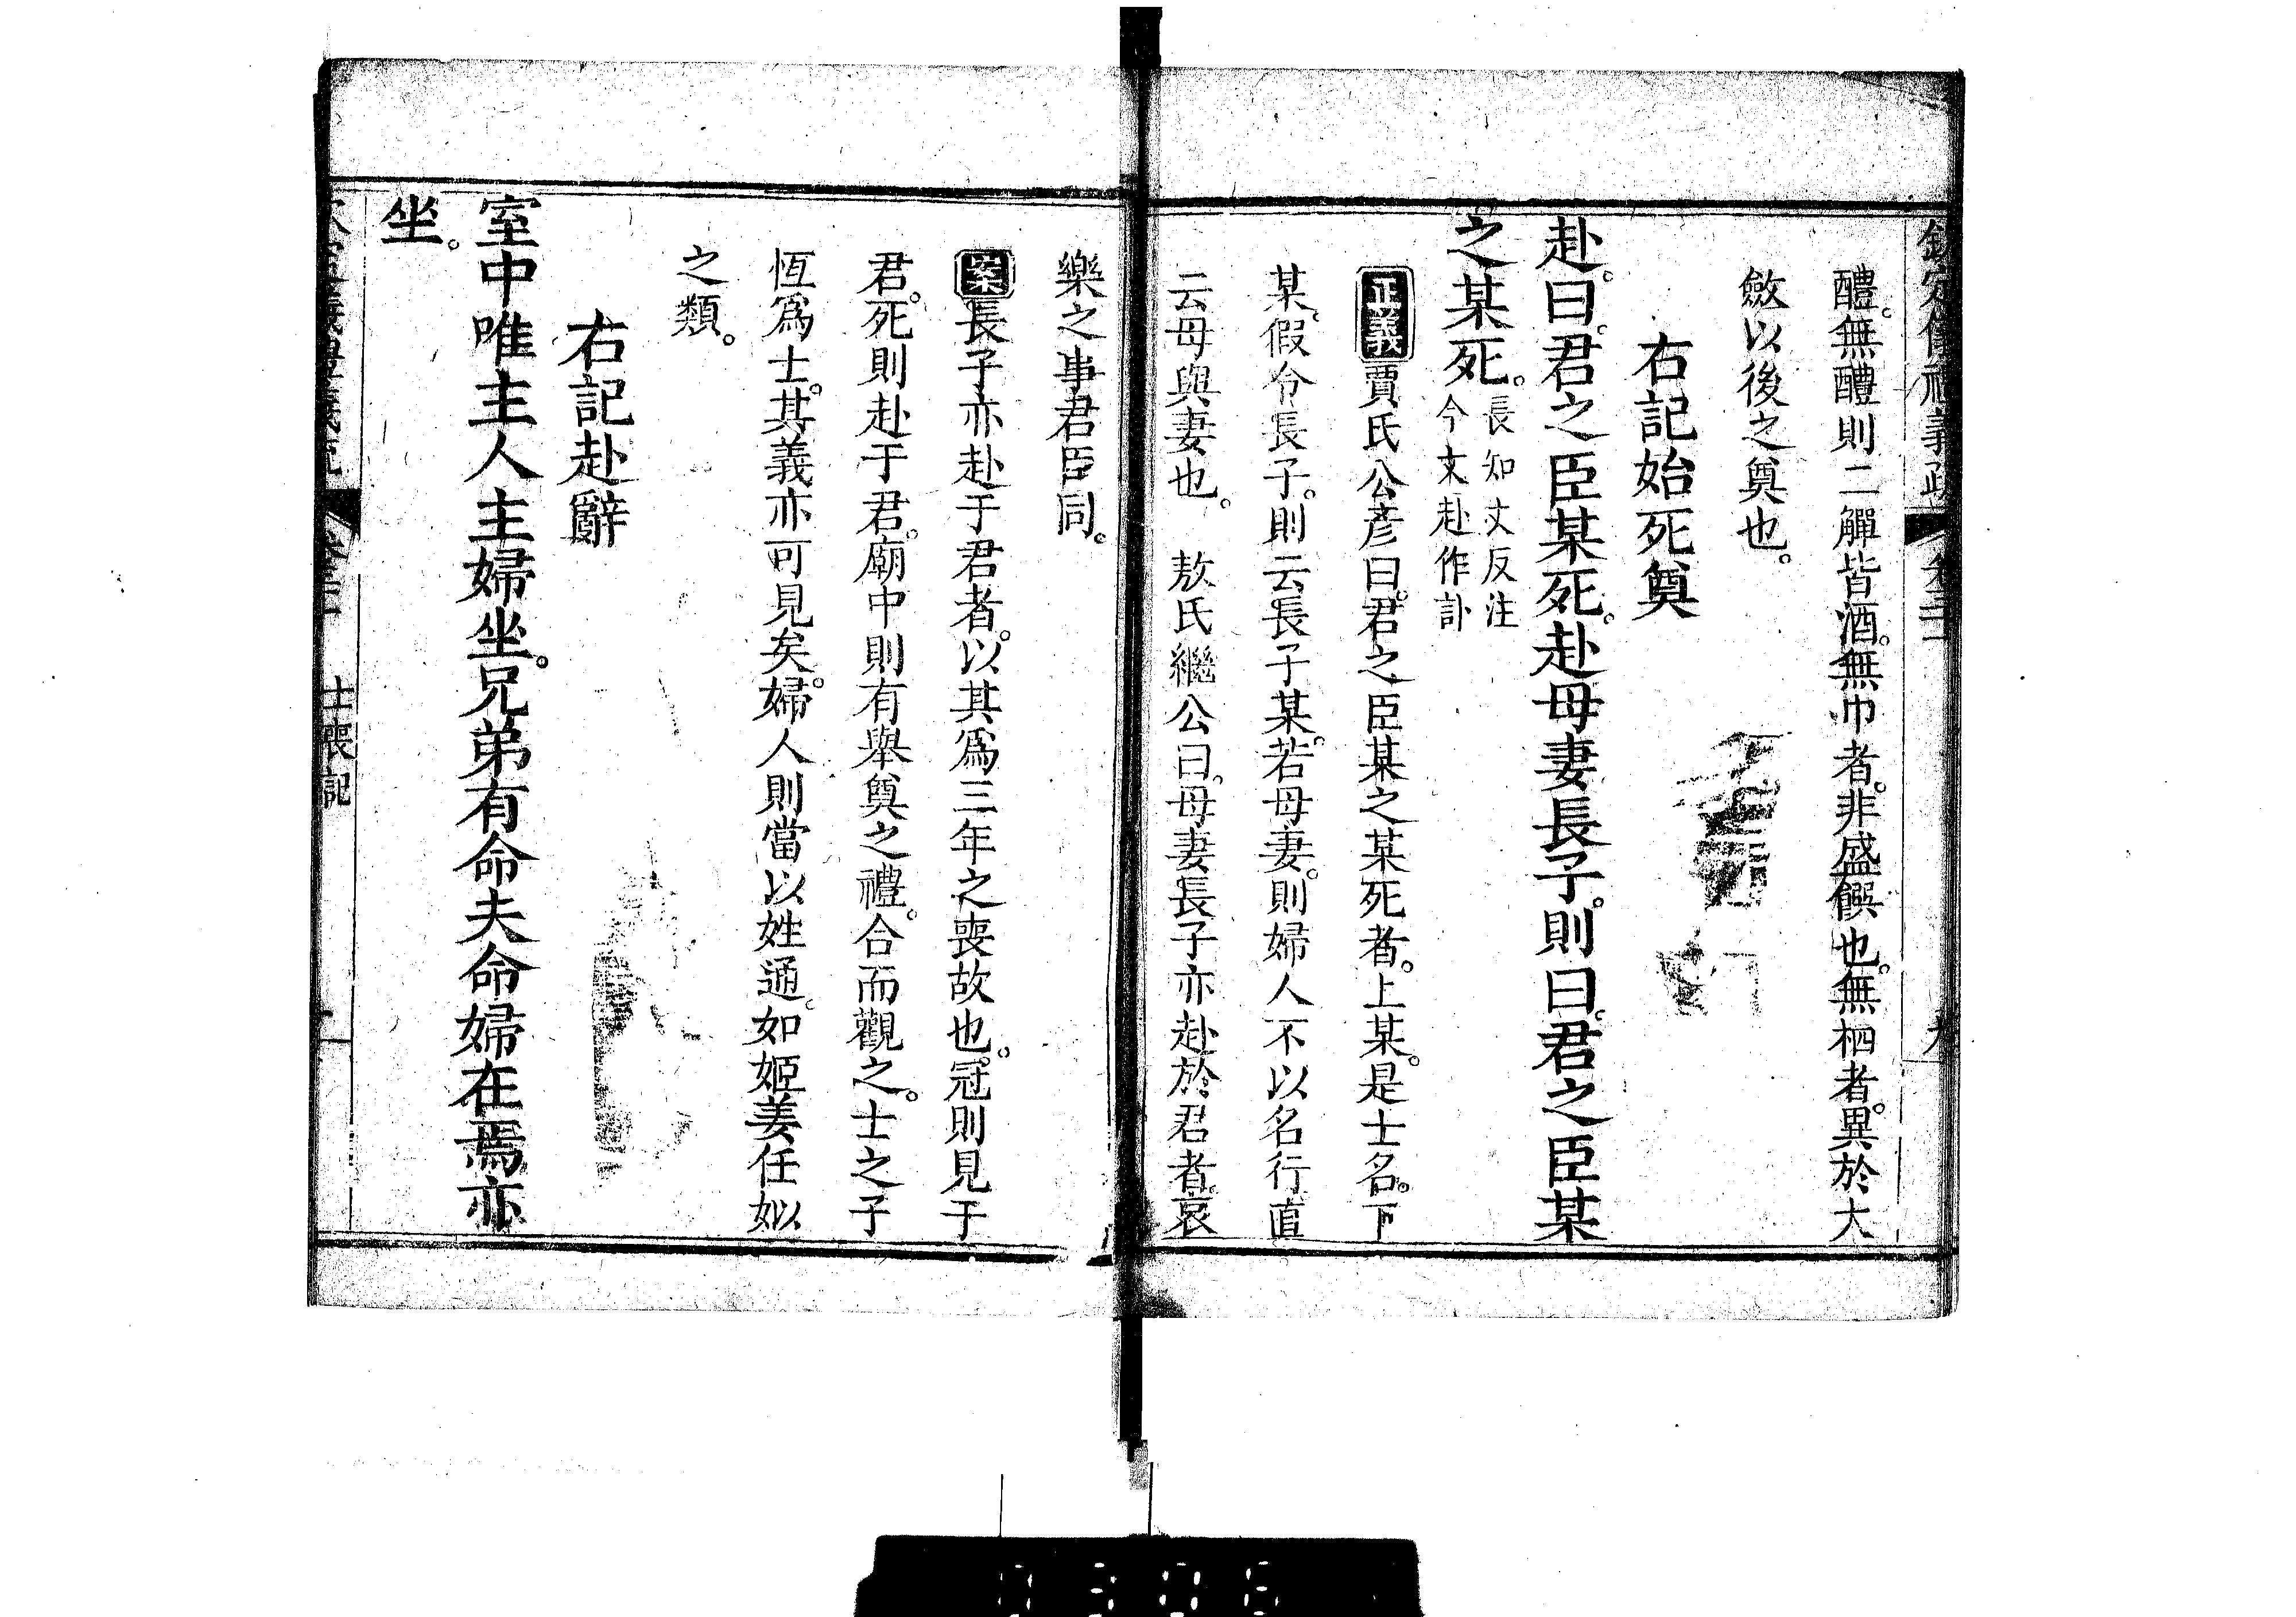 醴。無醴則二觶皆酒。無巾者。非盛饌也。無柶者。異於大
斂以後之奠也。
右記始死奠
赴。曰。君之臣某死。赴母妻長子。則曰。君之臣某
之某死。長知丈反注今文赴作訃
正義賈氏公彥曰。君之臣某之某死者。上某。是士名。下
某。假令長子。則云長子某。若母妻。則婦人不以名行直
云母與妻也。 敖氏繼公曰。母妻長子亦赴於君者。哀
樂之事君臣同。
案長子亦赴于君者。以其爲三年之喪故也。冠則見于
君。死則赴于君。廟中則有舉奠之禮。合而觀之。士之子
恆爲士。其義亦可見矣。婦人則當以姓通。如姬姜任姒
之類。
右記赴辭
室中唯主人主婦坐。兄弟有命夫命婦在焉亦
坐。
士喪記